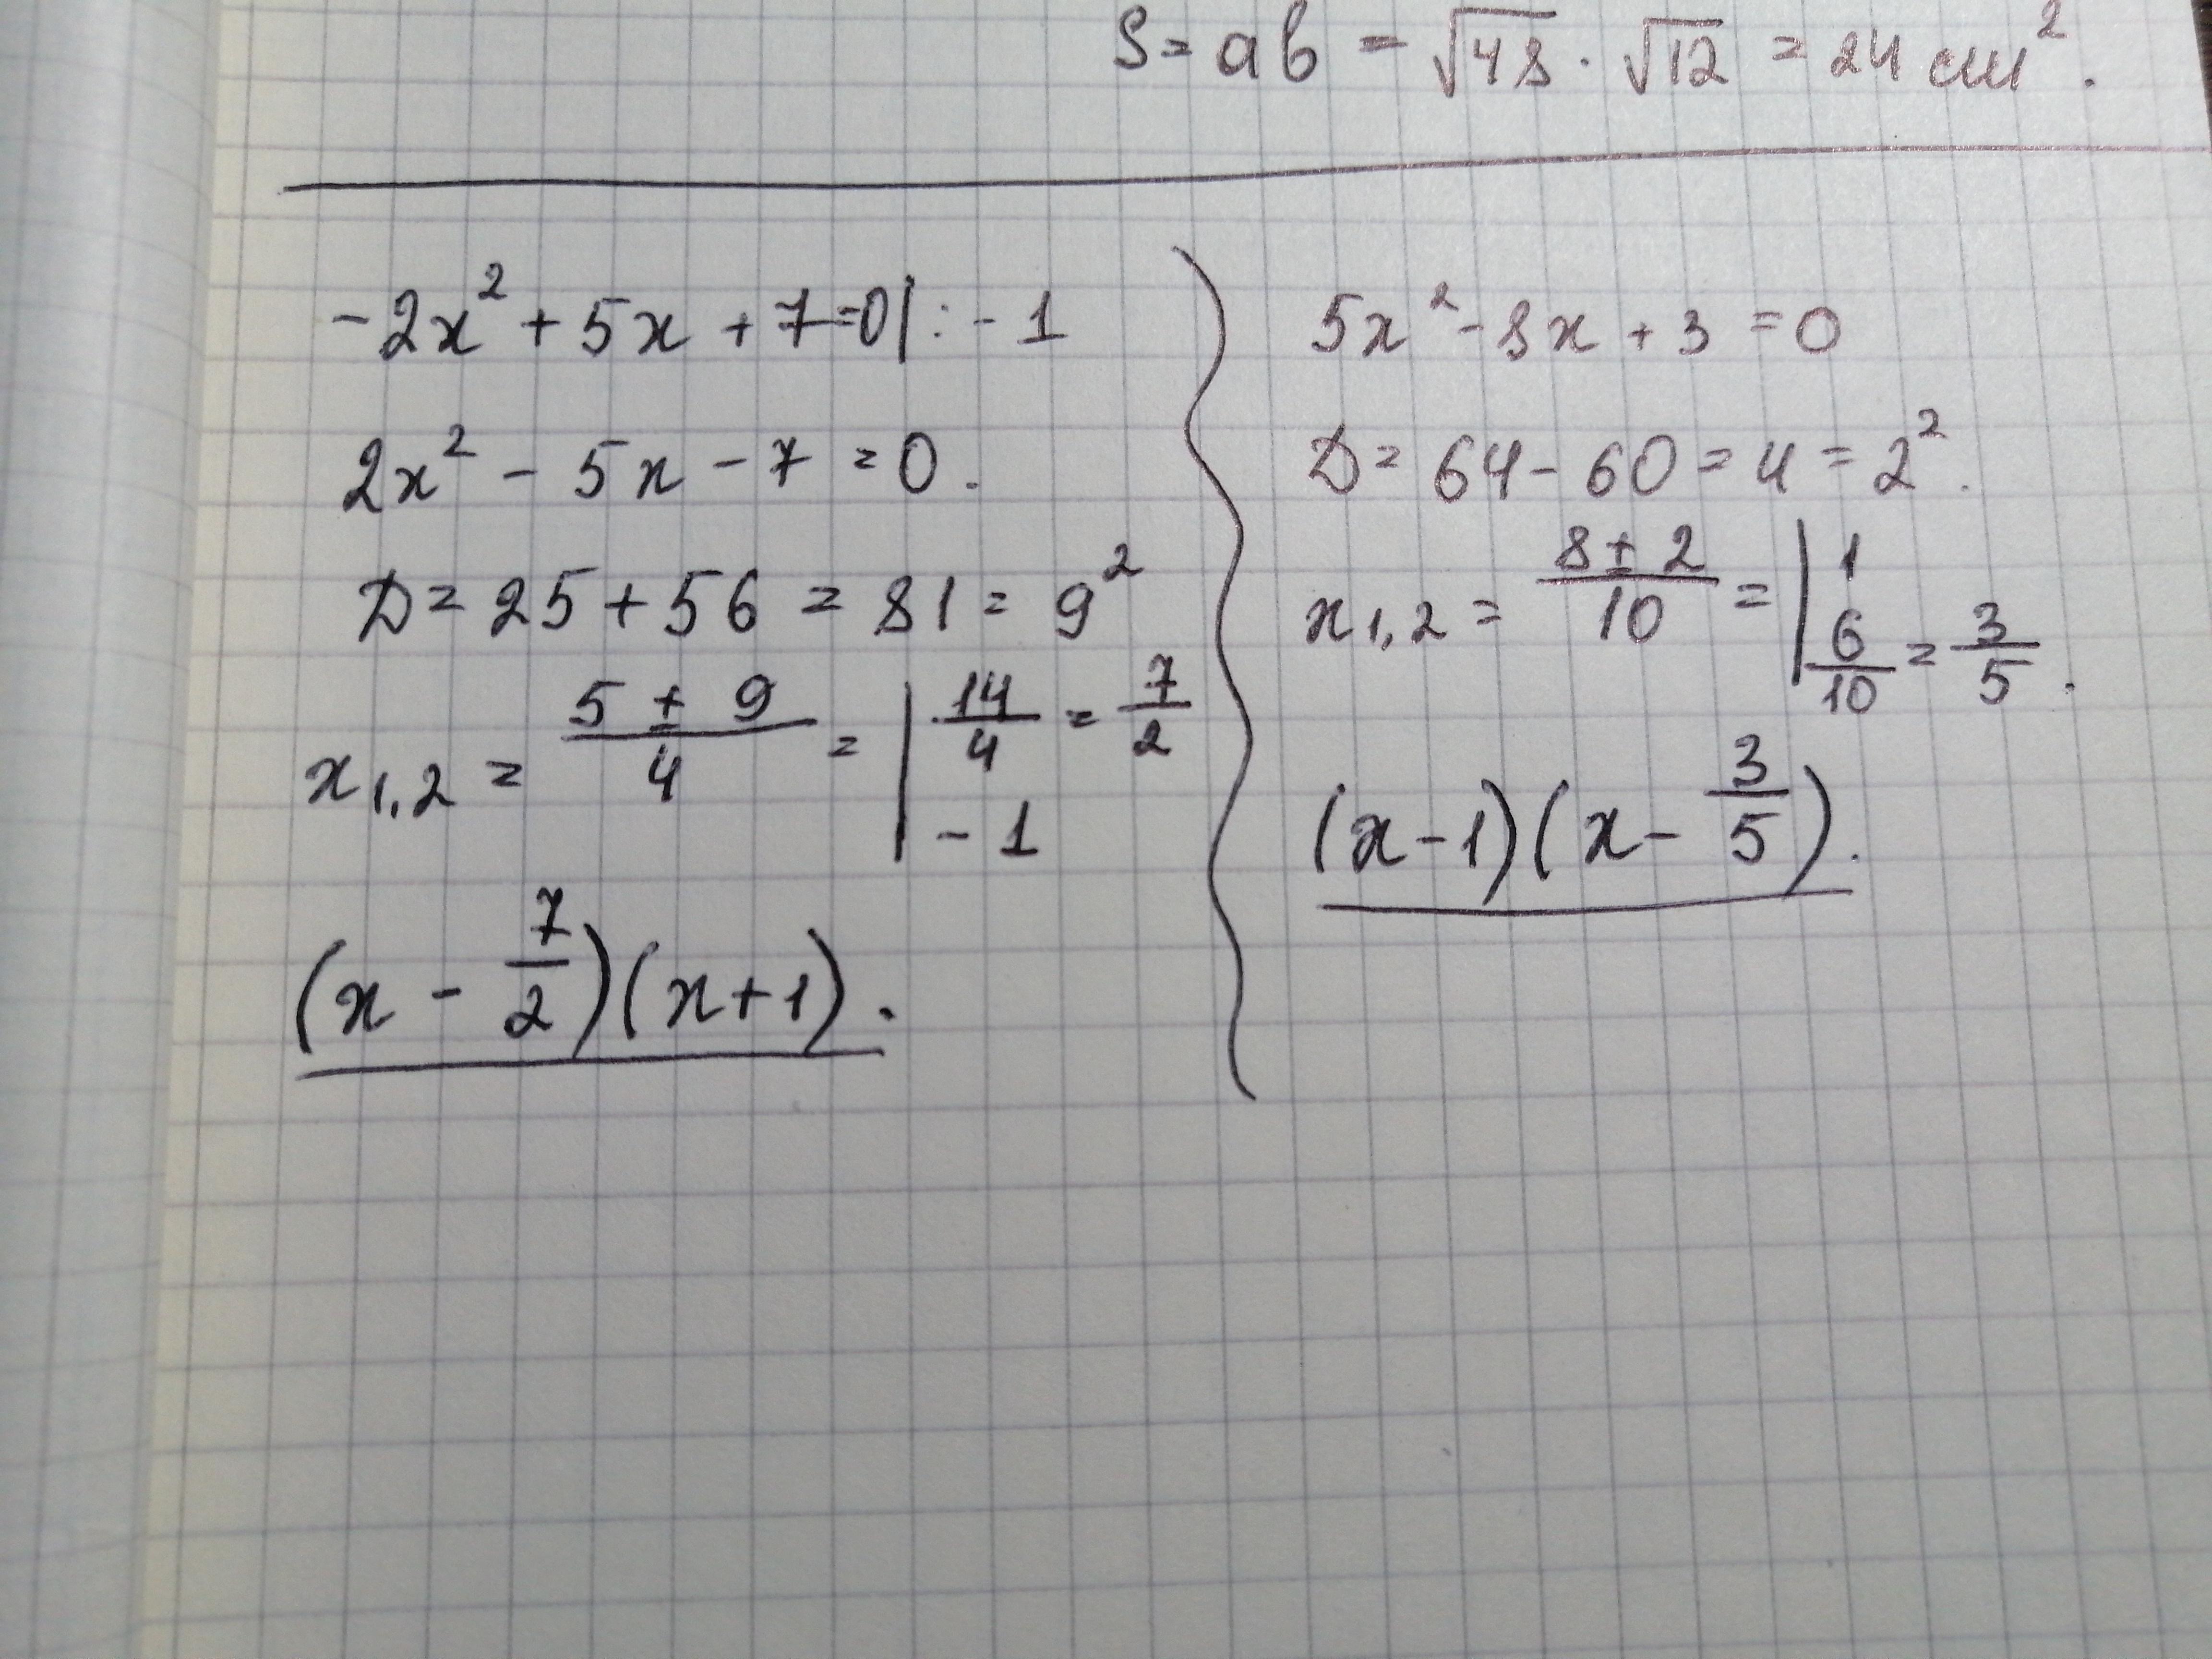 S = ab = √48 · √12 = 24 см².
-2x² + 5x + 7 = 0 | : - 1
2x² - 5x - 7 = 0.
D = 25 + 56 = 81 = 9²
x₁,₂ = (5 ± 9)/4 = | 14/4 = 7/2
- 1
(x - 7/2)(x + 1).
5x² - 8x + 3 = 0
D = 64 - 60 = 4 = 2².
x₁,₂ = (8 ± 2)/10 = | 1
6/10 = 3/5.
(x - 1)(x - 3/5).